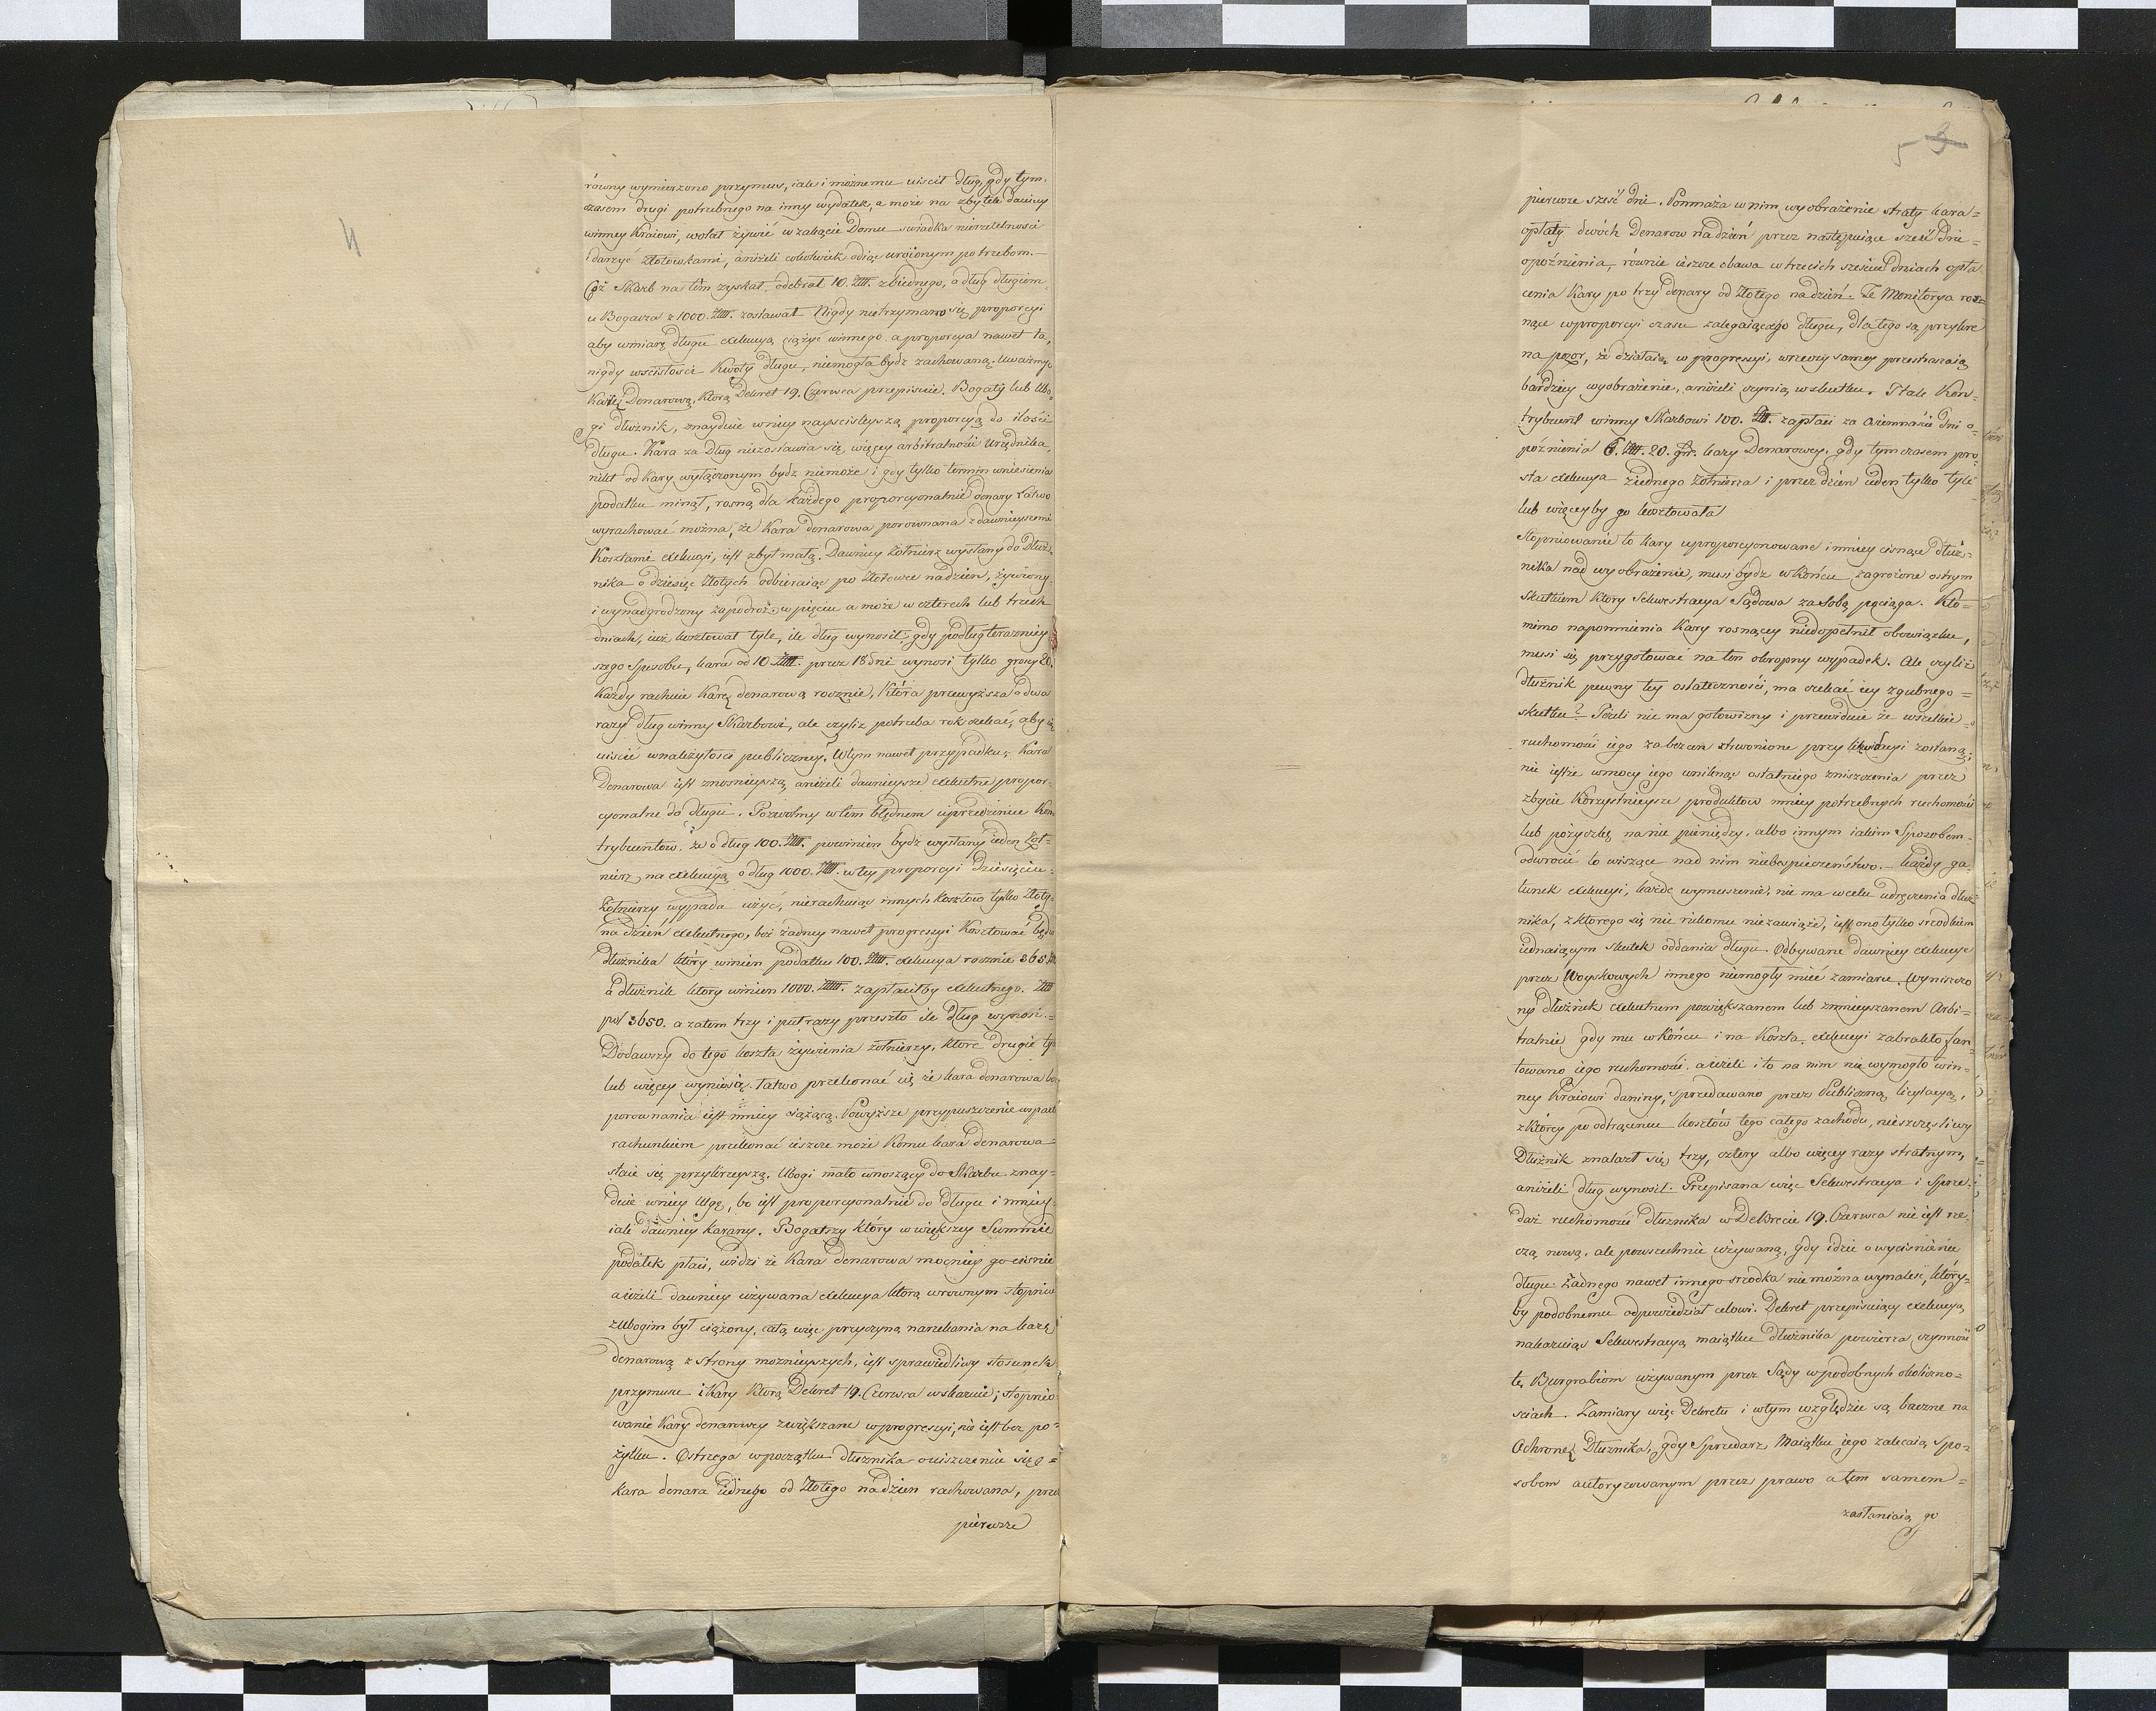 4
równy wymierzono przymus, iak i możnemu uiścił dług, gdy tym-
czasem drugi potrzebnego na inny wydatek, a może na zbytek daniny
winney Kraiowi, wolał żywić w zakącie Domu swiadka nierzetelności
i darzyc złotówkami, aniżeli cokolwiek odiąc uroionym potrzebom.—
Coż Skarb na tem zyskał, odebrał 10. Złł. z biednego, a dług długiem
u Bogacza z 1000. Złł. zostawał Nigdy nie trzymano się proporcyi
aby w miarę długu exekucyą ciążyc winnego a proporcya nawet ta,
nigdy w scisłosci Kwoty długu, niemogła bydz zachowaną. Uważmy
Karę Denarową, ktorą Dekret 19. Czerwca przepisuie. Bogaty lub Ubo-
gi dłużnik, znayduie w niey nayscisleyszą proporcyą do ilości
długu. Kara za Dług niezostawia się więcey arbitralności Urzędnika,
nikt od Kary wyłączonym bydz niemoże i gdy tylko termin wniesienia
podatku minął, rosną dla każdego proporcyonalnie denary Łatwo
wyrachować można, że Kara denarowa porownana z dawnieyszemi
Kosztami exekucyi, iest zbyt małą. Dawniey żołnierz wysłany do Dłuż-
nika o dziesięc złotych odbieraiąc po złotowce na dzien, żywiony
i wynadgrodzony za podroż w pięciu a może w czterech lub trzech
dniach, iuż kosztował tyle, ile dług wynosił gdy podług terazniey
szego sposobu, kara od 10 Złł. przez 18 dni wynosi tylko groszy 20.
Każdy rachuie Karę denarową rocznie, która przewyższa o dwa
razy dług winny Skarbowi, ale czyliz potrzeba rok czekać, aby się
uiscić w należytosci publiczney. W tym nawet przypadku, Kara
Denarowa iest znosnieyszą aniżeli dawnieysze exekutne propor-
cyonalne do długu. Pozwolmy w tem błędnem uprzedzeniu Kon-
trybuentów, że o dług 100. Złł. powinien bydz wysłany ieden żoł-
nierz, na exekucyą o dług 1000. Złł. w tey proporcyi dziesięciu
żołnierzy wypada użyć, nierachuiąc innych kosztow tylko Złoty
na dzień exekutnego, bez żadney nawet progressyi Kosztować będzie
Dłużnika ktory winien podatku 100. Złł. exekucya rocznie 365 Złł
a dłużnik ktory winien 1000. Złł. zapłaciłby exekutnego. Złł
pol 3650. a zatem trzy i puł razy przeszło ile dług wynosi.=
Dodawszy do tego koszta żywienia żołnierzy, ktore drugie tyle
lub więcey wyniosą. Łatwo przekonać się że kara denarowa bez
porownania iest mniey ciążącą. Powyższe przypuszczenie wsparte
rachunkiem przekonać ieszcze może Komu kara denarowa=
staie się przykrzeyszą. Ubogi mało wnoszący do Skarbu znay=
duie w niey ulgę, bo iest proporcyonalnie do Długu i mniey
iak dawniey karany. Bogatszy który w większey Summie
podatek płaci, widzi że Kara denarowa mocniey go cisnie
aniżeli dawniey używana exekucya ktorą w rownym stopniu
z Ubogim był ciążony, całą więc przyczyną narzekania na karę
denarową z strony możnieyszych, iest sprawiedliwy stosunek
przymusu i Kary ktorą Dekret 19. Czerwca wskazuie; stopnio
wanie Kary denarowey zwiększane w progressyi, nie iest bez po=
żytku. Ostrzega w początku dłużnika o uiszczenie się=
kara denara iednego od złotego na dzien rachowana, przez
pierwsze
5 3
pierwsze sześć dni. Pomnaża w nim wyobrażenie straty kara=
opłaty dwóch Denarow na dzień przez następuiące sześć dni=
opóźnienia, równie ieszcze obawa w trzecich sześciu dniach opła
cenia Kary po trzy denary od złotego na dzień. Te Monitorya ros-
nące w proporcyi czasu zalegaiącego długu, dla tego są przykre
na pozor, że działaią w progressyi, w rzeczy samey przestraszaią
bardziey wyobrażenie, aniżeli czynią w skutku. I tak Kon-
trybuent winny Skarbowi 100. Złł. zapłaci za ośmnaście dni o-
późnienia 6. Złł. 20. gr. kary Denarowey, gdy tymczasem pro-
sta exekucya iednego żołnierza i przez dzien ieden tylko tyle
lub więceyby go kosztowała
Stopniowanie to kary uproporcyonowane i mniey cisnące dłuż-
nika nad wyobrażenie, musi bydz w końcu zagrożone ostrym
skutkiem ktory Sekwestracya Sądowa za sobą pociąga. Kto=
mimo napomnienia Kary rosnącey niedopełnił obowiązku,
musi się przygotować na ten okropny wypadek. Ale czyliż
dłużnik pewny tey ostateczności, ma czekać iey zgubnego=
skutku? Jeżeli nie ma gotowizny i przewiduie że wszelkie
ruchomości iego za bezcen strwonione przy licytacyi zostaną;
nie iestże w mocy iego uniknąc ostatniego zniszczenia przez
zbycie Korzystnieysze produktow mniey potrzebnych ruchomosci
lub pożyczkę na nie pieniędzy, albo innym iakim sposobem
odwrocić to wiszące nad nim niebezpieczeństwo.— każdy ga-
tunek exekucyi, każde wymuszenie, nie ma w celu udręczenia dłuż
nika, z ktorego się nic nikomu nie zawiąże, iest ono tylko srzodkiem
iednaiącym skutek oddania długu. Odbywane dawniey exekucye
przez Woyskowych innego niemogły mieć zamiaru. Wyniszczo
ny dłużnik exekutnem powiększanem lub zmnieyszanem Arbi-
tralnie, gdy mu w końcu i na koszta exekucyi zabrakło fan-
towano iego ruchomości, a ieżeli i to na nim nie wymogło win-
ney Kraiowi daniny, sprzedawano przez Publiczną licytacyą,
z ktorey po odtrąceniu kosztów tego całego zachodu, nieszczęsliwy
Dłużnik znalazł się trzy, cztery albo więcey razy stratnym,
aniżeli dług wynosił. Przepisana więc Sekwestracya i sprze-
daż ruchomości dłużnika w Dekrecie 19. Czerwca nie iest rze-
czą nową, ale powszechnie używaną, gdy idzie o wyciśnienie
długu. Żadnego nawet innego srzodka nie można wynaleść, który-
by podobnemu odpowiedział celowi. Dekret przepisuiący exekucyą
nakazuiąc Sekwestracyą maiątku dłużnika powierza czynność
tę Burgrabiom używanym przez Sądy w podobnych okoliczno=
sciach. Zamiary więc Dekretu i w tym względzie są baczne na
Ochronę Dłużnika, gdy Sprzedarz Maiątku iego zalecaią spo-
sobem autoryzowanym przez prawo a tem samem=
zasłaniaią go